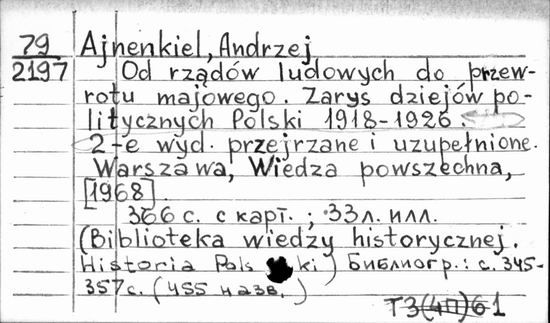 79 Ajnenkiel, Andrzej
2197 Od rządów ludowych do przew-
rotu majowego. Zarys dziejów po-
litycznych Polski 1918-1926.
2-e wyd. przejrzane i uzupełnione.
Warszawa, Wiedza powszechna,
[1968].
366 с. с карт. ; 33 л. илл.
(Biblioteka wiedzy historycznej.
Historia Pols ki) Библиогр.: с. 345-
357 с. (455 назв.)
Т3(4П)61